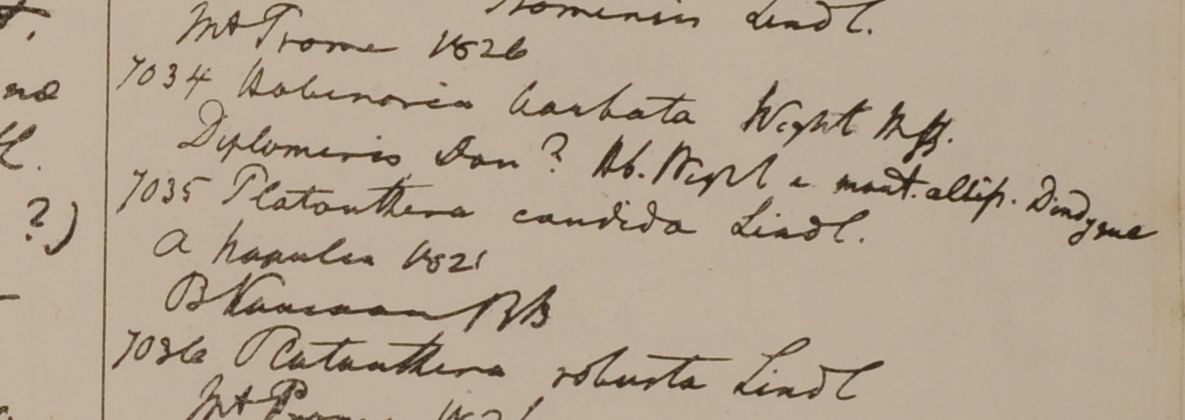 Lindl.
Mt Prome 1826
7034 Habenaria barbata Wight Mss.
Diplomeris Don? Hb. Wight e mont. altiss. Dindygul
7035 Platanthera candida Lindl.
a Napalia 1821
B Kamaon RB
7036 Platanthera robusta Lindl
Mt Prome